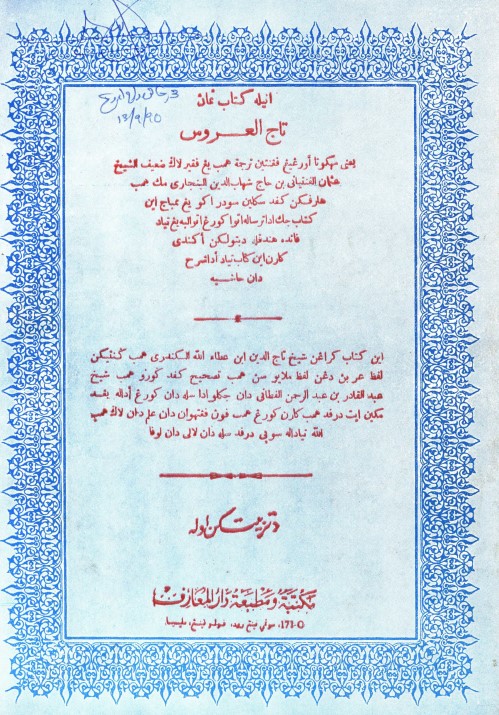 13/9/90
انيله كتاب نمان
تاج العروس
يعنى سهكوتا أورغيغ ففنتين ترجمة همب يغ فقير لاڬ ضعيف الشيخ
عثمان الفنتيانى بن حاج شهاب الدين البنجارى مك همب
هارفكن كفد سكلين سودر اكو يغ مباچ اين
كتاب جك اد ترساله اتوا كورغ اتوا لبه يغ تياد
فائده هندقله دبتولكن أكندى
كارن اين كتاب تياد أد شرح
دان حاشيه
اين كتاب كراغن شيخ تاج الدين ابن عطاء الله السكندرى همب ڬنتيكن
لفظ عربن دغن لفظ ملايو سن همب تصحيح كفد ڬورو همب شيخ
عبد القادر بن عبد الرحمن الفطانى دان جكلو اد اسله دان كورغ أداله يغد
مكين ايت درفد همب كارن كورغ همب فون فغتهوان دان علم دان لاڬ همب
الله تياد اله سوچى درفد سله دان لالى دان لوفا
دتربيتكن اوله
مكتبة ومطبعة دار المعارف
171-O، جوني فينغ رود، فولو فينغ، مليسيا